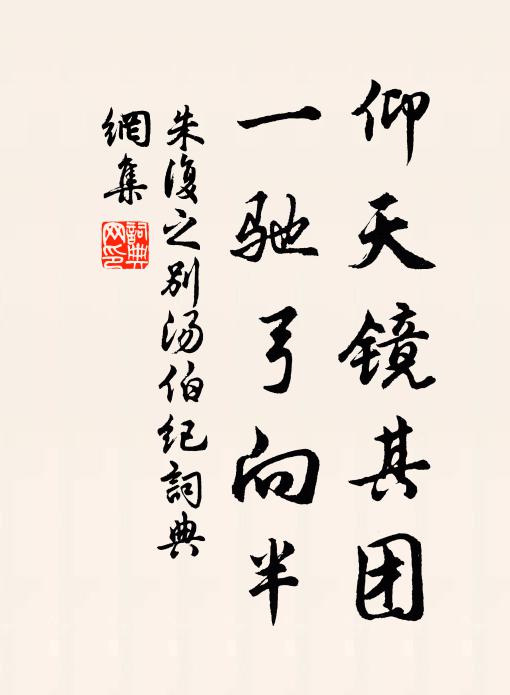 仰天镜其团
一驰弓向半
朱復之别汤伯纪詞典
網集
詞典网印